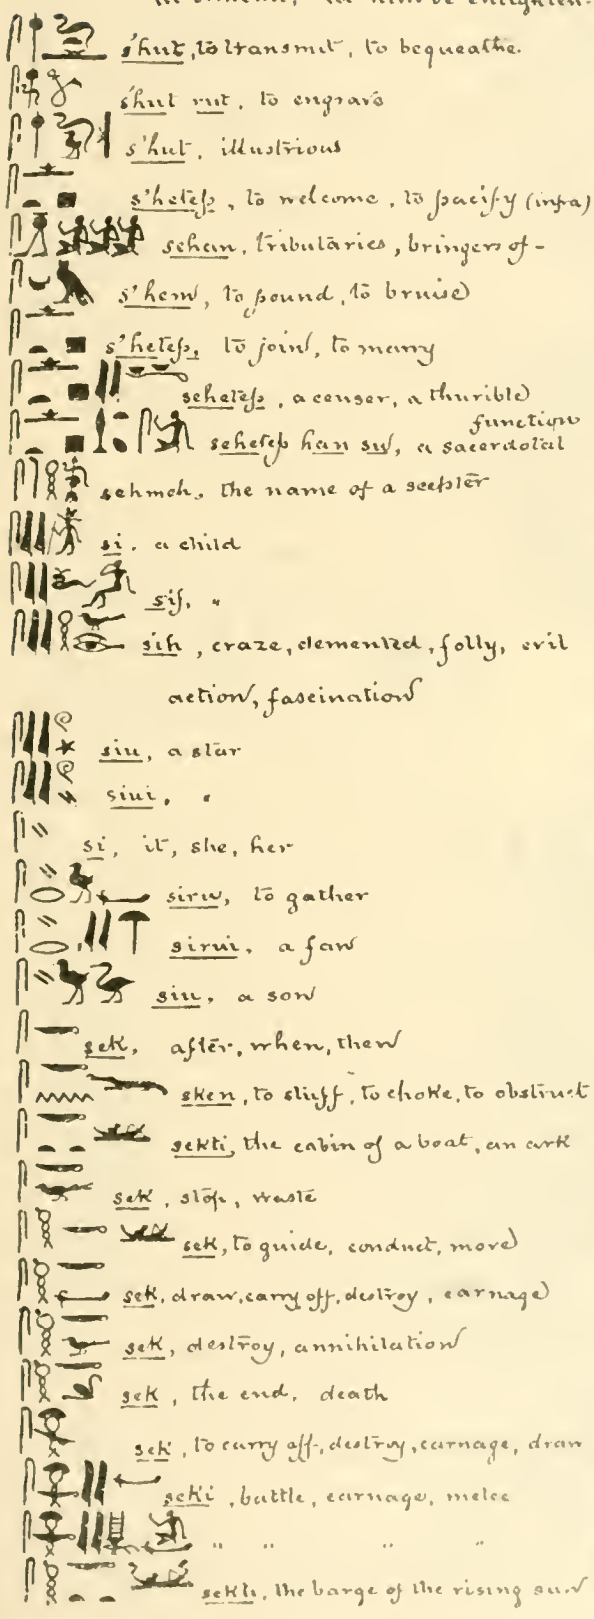 s'hut, to transmit, to bequeathe.
s'hut rut, to engrave
s'hut, illustrious
s'hetep, to welcome, to pacify (infra)
sehan, tributaries, bringers of -
s'hem, to pound, to bruise
s'hetep, to join, to marry
sehetep, a censer, a thurible
function
sehetep han su, a sacerdotal
sehmeh, the name of a scepter
si, a child
sif, "
sih, craze, demented, folly, evil
action, fascination
siu, a star
siui, "
si, it, she, her
siru, to gather
sirui, a fan
siu, a son
sek, after, when, then
sken, to stuff, to choke, to obstruct
sekti, the cabin of a boat, an ark
sek, stop, waste
sek, to guide, conduct, move
sek, draw, carry off, destroy, carnage
sek, destroy, annihilation
sek, the end, death
sek, to carry off, destroy, carnage, draw
seki, battle, carnage, melee
" " " "
sekti, the barge of the rising sun